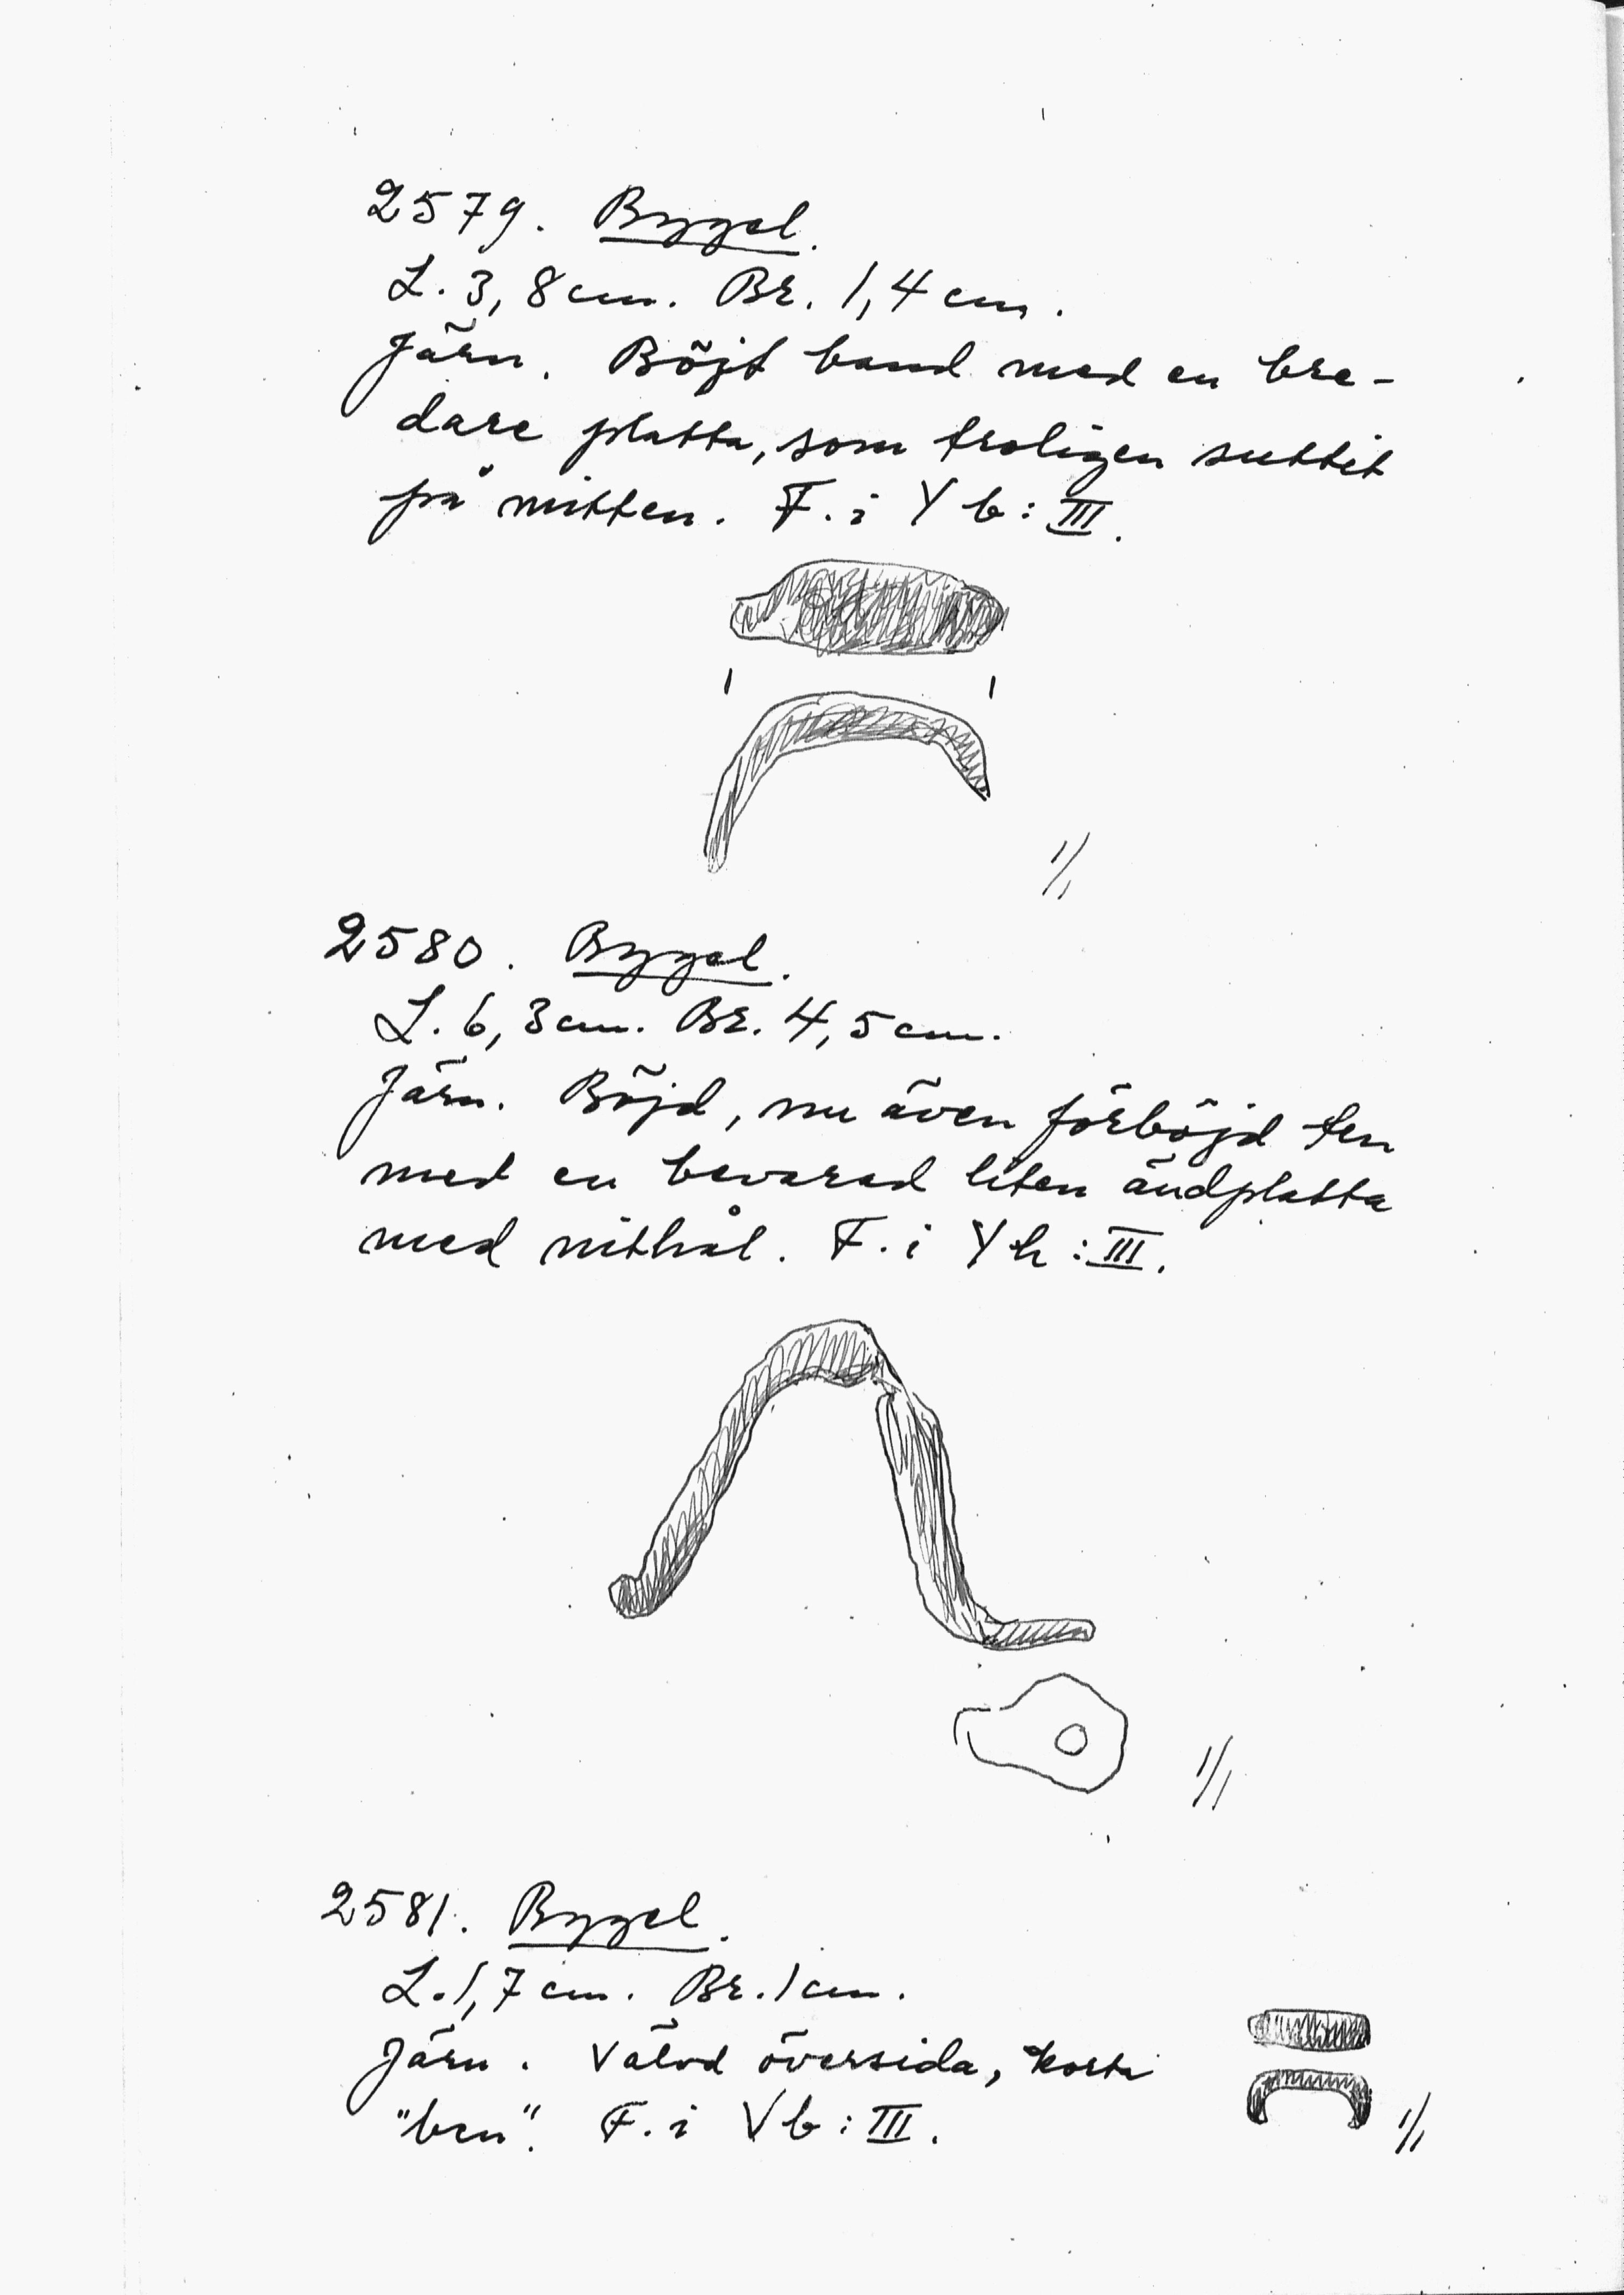 2579. Bygel.
L. 3,8 cm. Br. 1,4 cm.
Järn. Böjt band med en bre-
dare platta, som troligen suttit
på mitten. F. i Y b : III.
1/1
2580. Bygel.
L. 6,3 cm. Br. 4,5 cm.
Järn. Böjd, nu även förböjd ten
med en bevarad liten ändplatta
med nithål. F. i Y h : III.
1/1
2581. Bygel.
L. 1,7 cm. Br. 1 cm.
Järn. Välvd översida, korta
"ben". F. i V b : III.
1/1